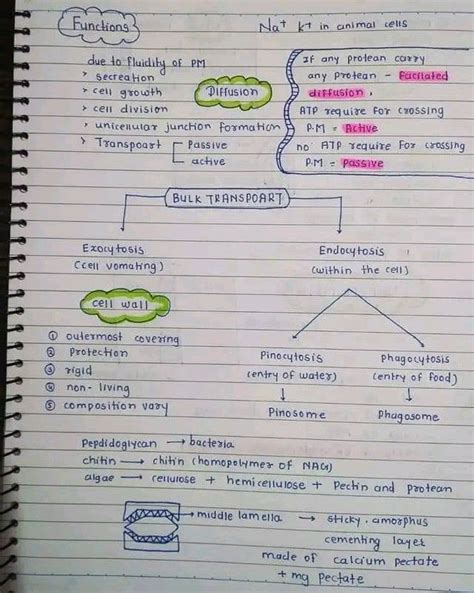 Functions
Na+ k+ in animal cells
due to fluidity of PM
> secreation
> cell growth
> cell division
> unicellular junction formation
> Transpoart
Passive
active
Diffusion
If any protean carry
any protean - facilated
diffusion.
ATP require for crossing
P.M = Active
no ATP require for crossing
P.M. = passive
BULK TRANSPOART
Exocytosis
(cell vomating)
Endocytosis
(within the cell)
cell wall
① outermost covering
② protection
③ rigid
④ non-living
⑤ composition vary
Pinocytosis
(entry of water)
Pinosome
Phagocytosis
(entry of food)
Phagosome
Pepdidoglycan → bacteria
chitin → chitin (homopolymer of NAG)
algae → cellulose + hemicellulose + Pectin and protean
middle lamella → sticky. amorphus
cementing layer
made of calcium pectate
+ mg pectate